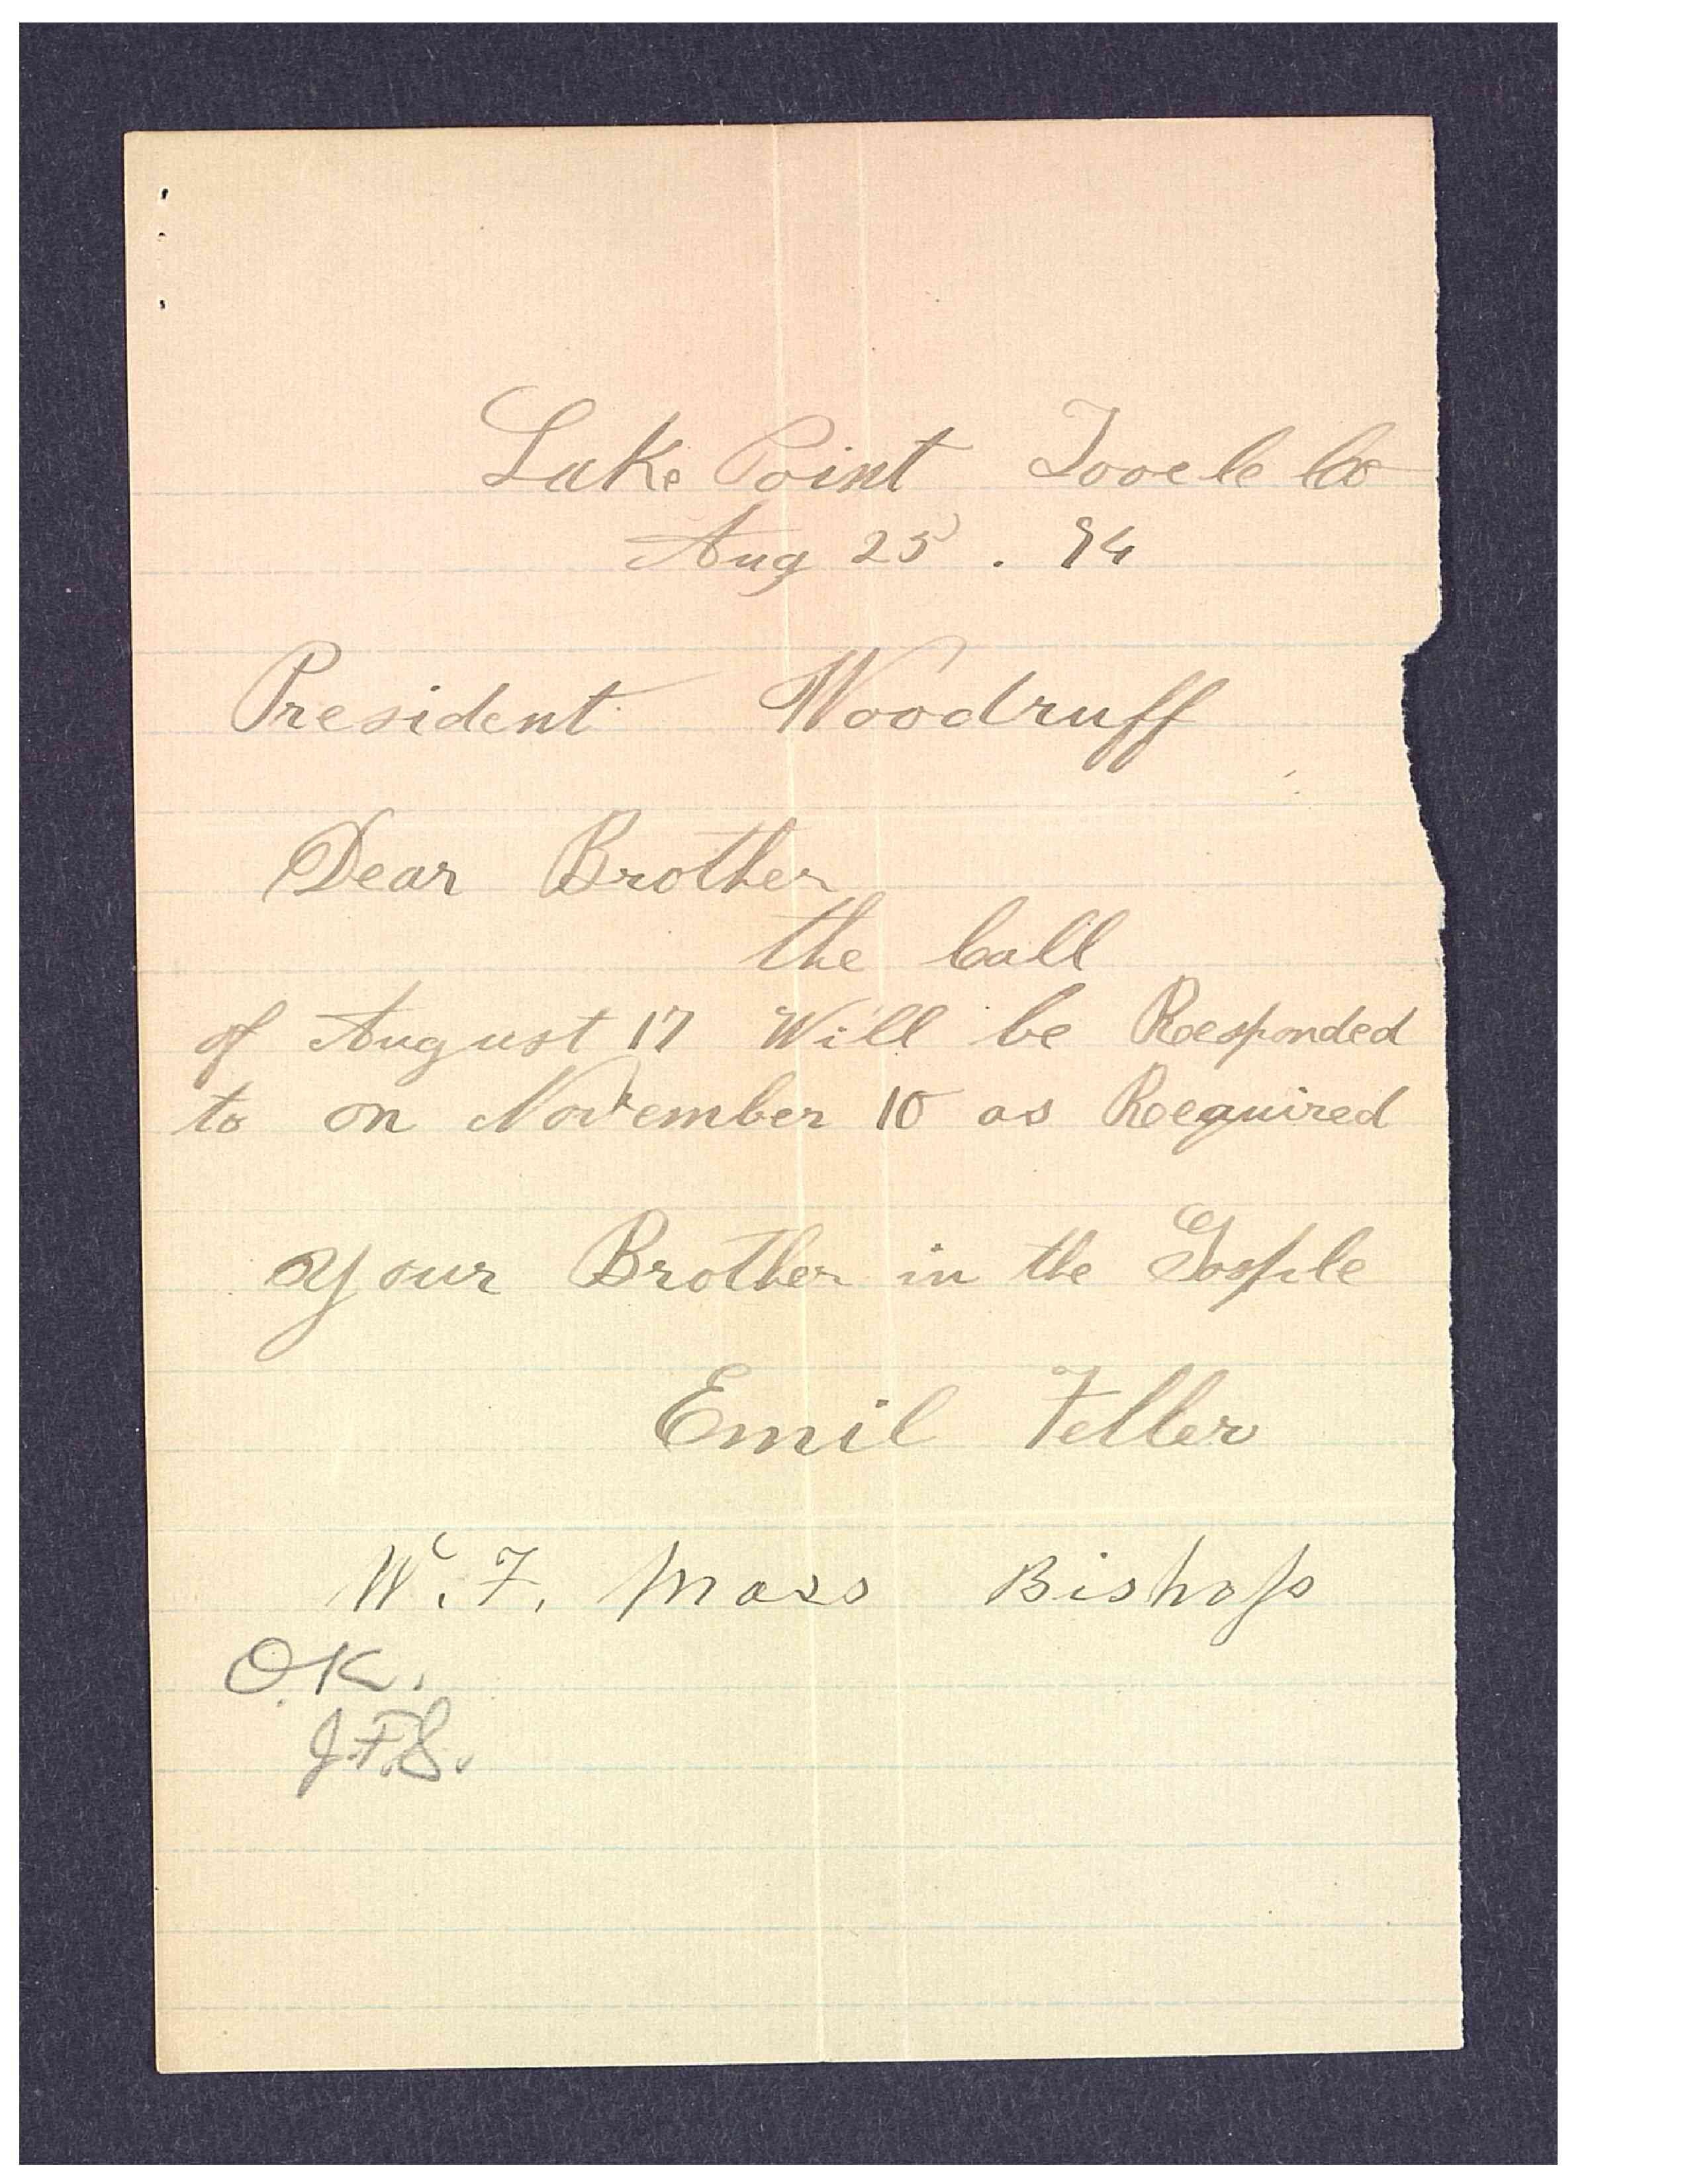 Lake Point Tooele Co
Aug 25. 94
President Woodruff
Dear Brother
the Call
of August 17 Will be Responded
to on November 10 as Required
Your Brother in the Gosple
Emil Feller
W. F. Moss Bishop
O.K.
J.F.S.